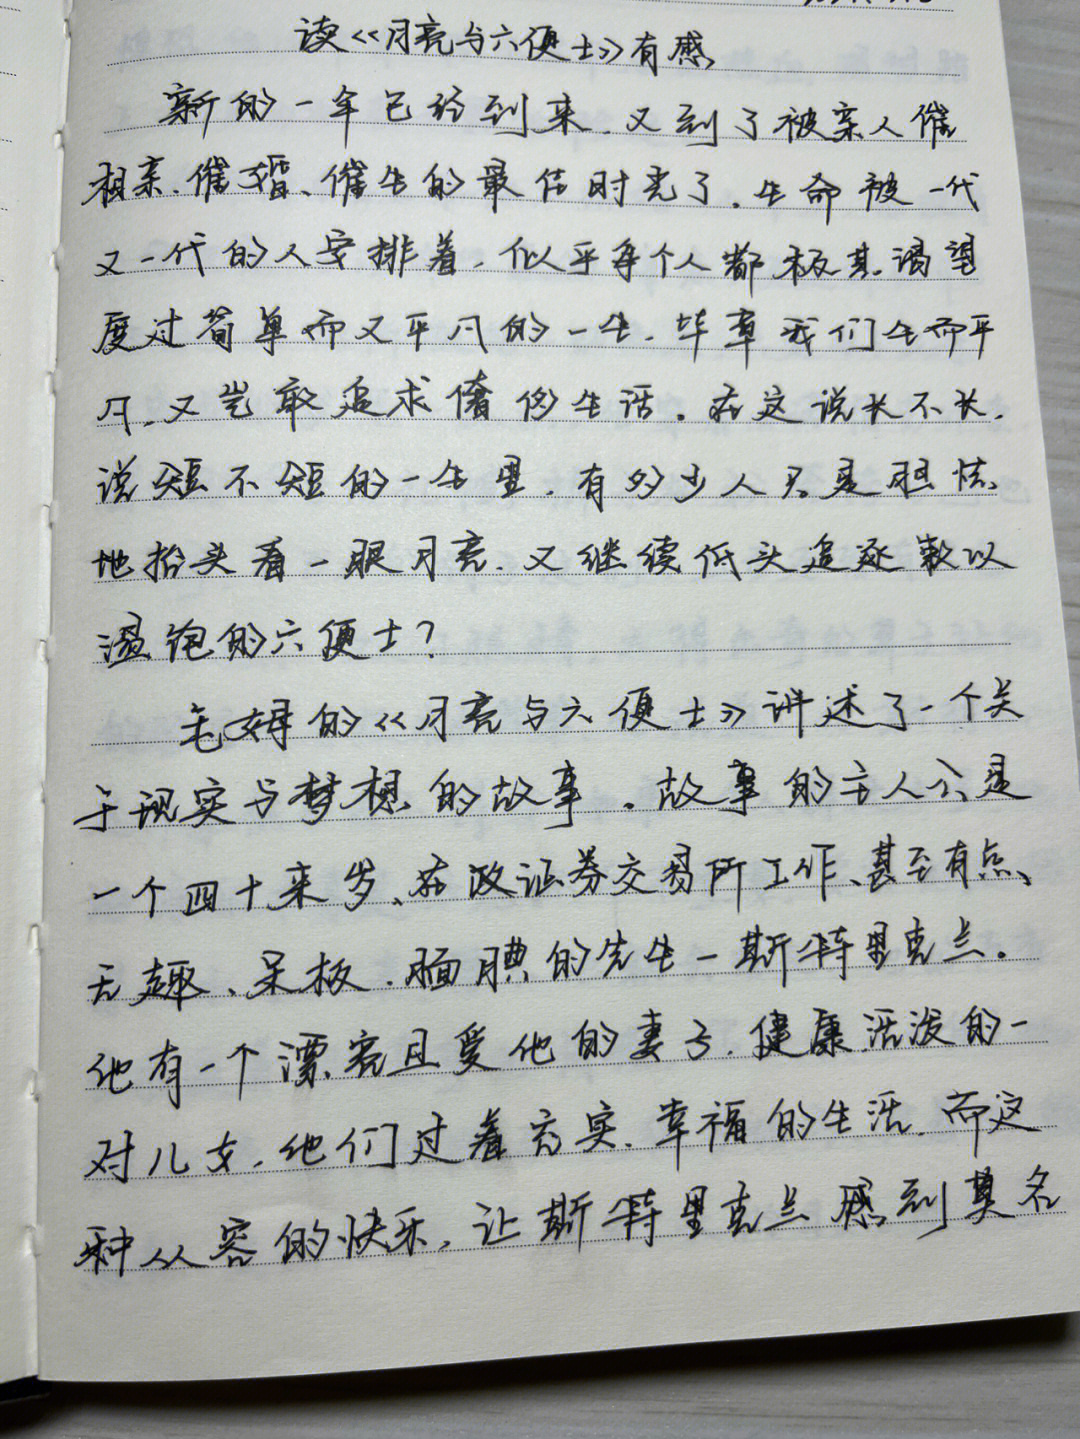 读《月亮与六便士》有感
新的一年已经到来，又到了被亲人催
相亲、催婚、催生的最佳时光了。生命被一代
又一代的人安排着，似乎每个人都极其渴望
度过简单而又平凡的一生，毕章我们生而平
凡，又岂敢追求奢侈生活。在这说长不长，
说短不短的一生里，有多少人只是胆怯
地抬头看一眼月亮，又继续低头追逐赖以
温饱的六便士？
毛姆的《月亮与六便士》讲述了一个关
于现实与梦想的故事。故事的主人公是
一个四十来岁、在政证券交易所工作、甚至有点
无趣、呆板、腼腆的先生－斯特里克兰。
他有一个漂亮且爱他的妻子，健康活泼的一
对儿女，他们过着充实、幸福的生活，而这
种从容的快乐，让斯特里克兰感到莫名